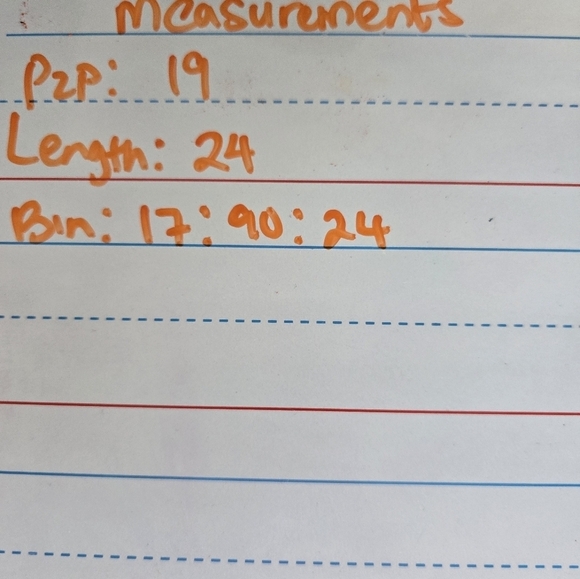 measurements
P2P: 19
Length: 24
Bin: 17:90:24